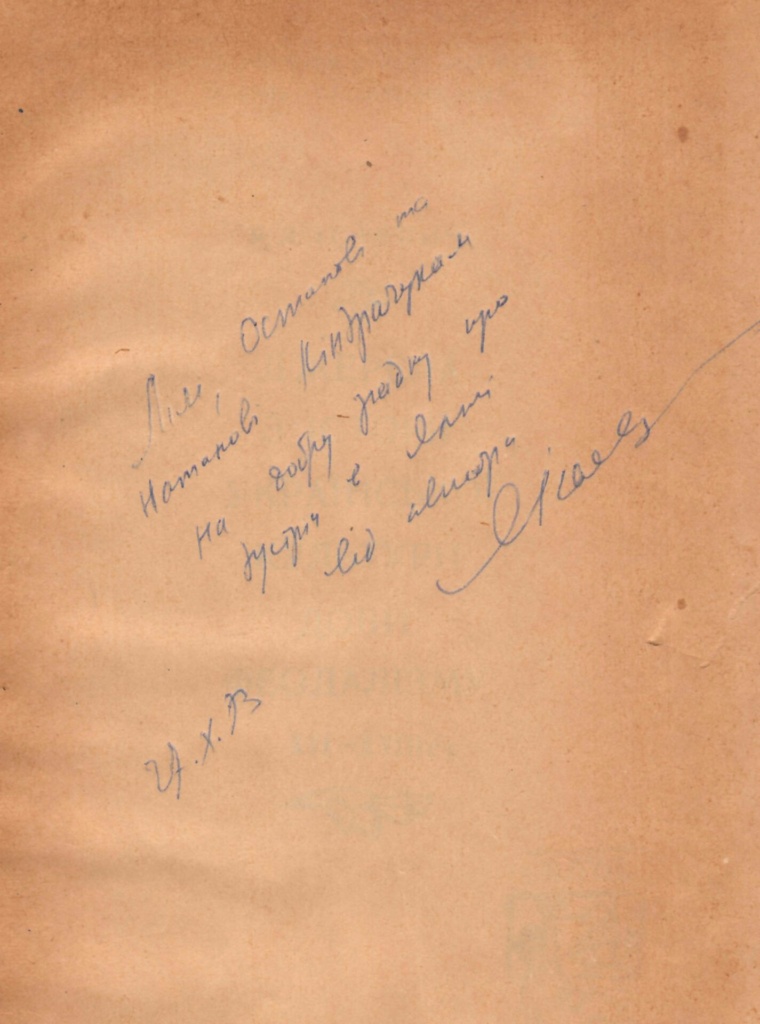 Лілі, Остапові та
Натанові Кіндрачукам
на добру згадку про
зустріч в Ялті
від автора
27.X.73